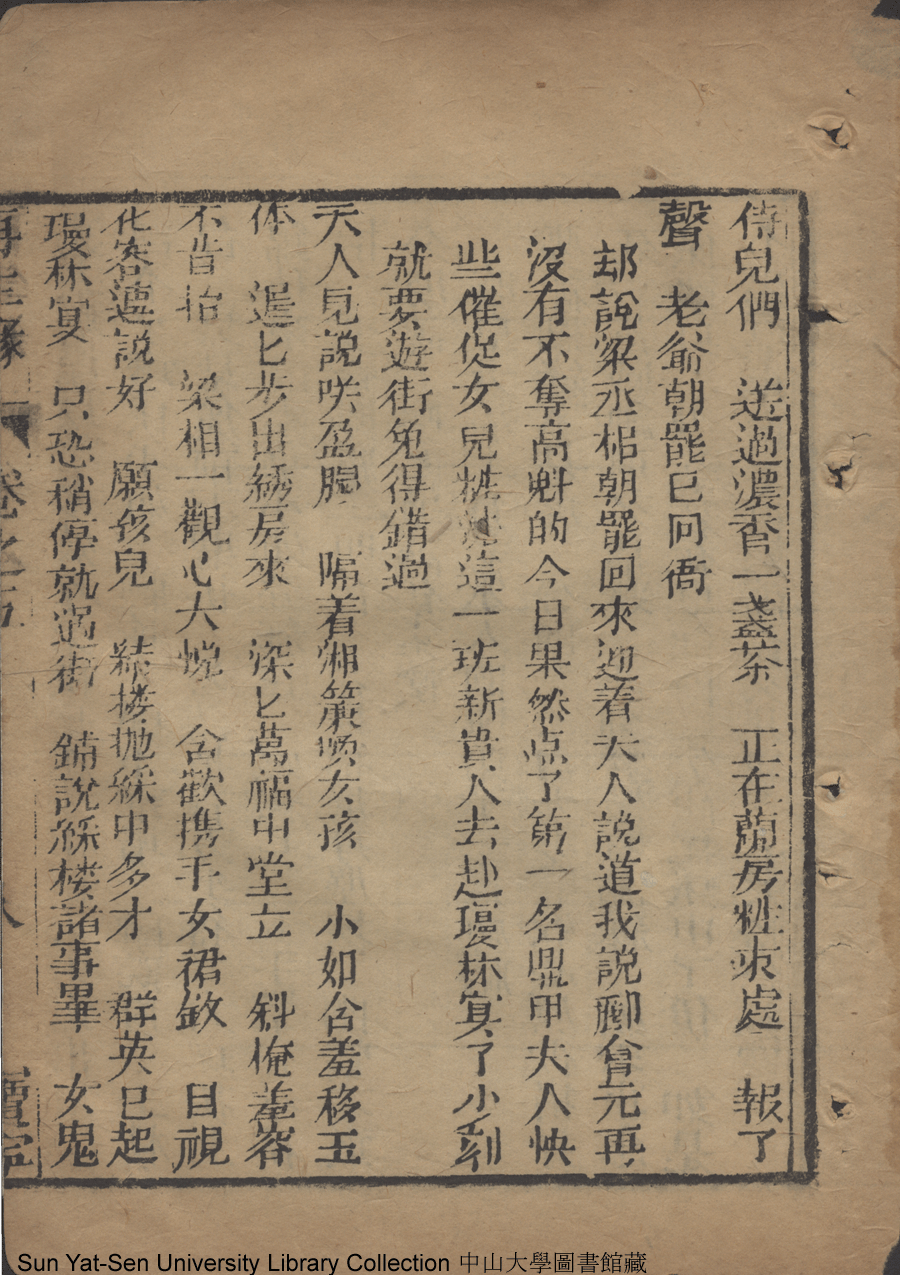 侍兒們　送過濃香一盞茶　正在蘭房粧束處　報了
聲　老爺朝罷已回衙
却說梁丞相朝罷回來迎着夫人說道我說酈會元再
沒有不奪高魁的今日果然点了第一名鼎甲夫人快
些催促女兒粧這一班新貴人去赴瓊林宴了小刻
就要遊街免得錯過
夫人見說咲盈腮　隔着湘簾喚女孩　小如含羞移玉
体　遲匕步出綉房來　深匕萬福中堂立　斜俺羞容
不肯抬　梁相一觀心大悅　含歡携手女裙釵　目視
花容連說好　願孩兒　綵楼拋綵中多才　群英已起
瓊林宴　只恐稍停就過街　鋪說綵楼諸事畢　女鬼
再生緣　卷之十五　八　寶寧
Sun Yat-Sen University Library Collection 中山大學圖書館藏